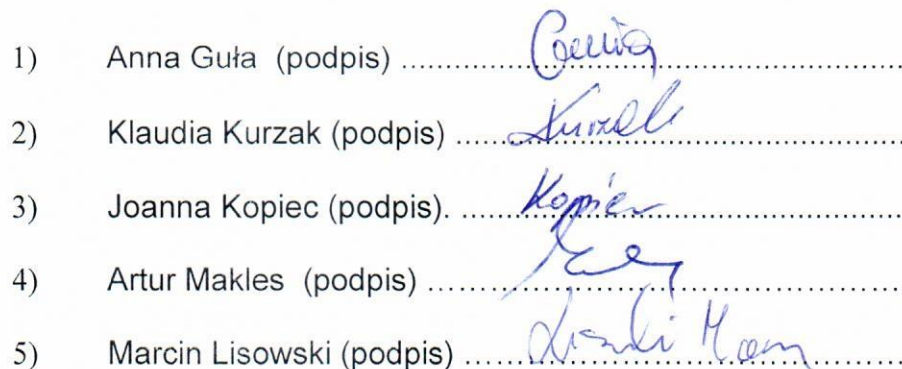 1) Anna Guła (podpis) ..............................
2) Klaudia Kurzak (podpis) .............................. Kurzak
3) Joanna Kopiec (podpis). .............................. Kopiec
4) Artur Makles (podpis) ..............................
5) Marcin Lisowski (podpis) ..............................